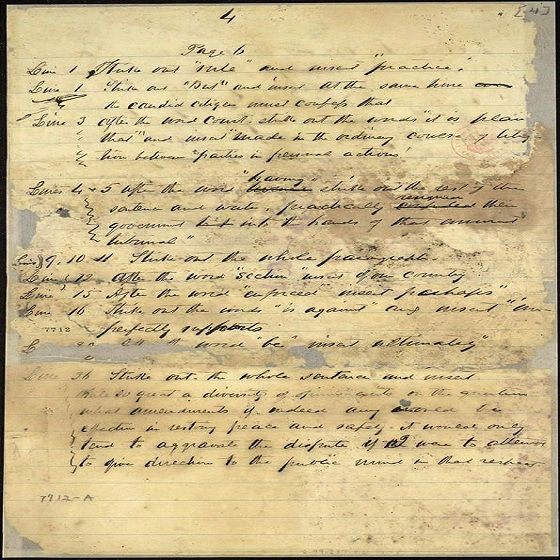 4
[4]
Page 6
Line 1 Strike out "rule" and insert "practice".
Line 1 Strike out "But" and insert At the same time
the candid citizen must confess that
Line 3 After the word Court, strike out the words "it is plain
that" and insert "made in the ordinary course of litiga
tion between parties in personal actions"
Lines 4 & 5 after the word "having" strike out the rest of the
sentence and write practically resigned their
government into the hands of that eminent
tribunal"
Lines 9. 10 11 Strike out the whole paragraph
Line 12 After the word "section" insert of our country
Line 15 After the word "enforced" insert "perhaps"
Line 16 Strike out the words "is against" and insert "im
7712
perfectly supports
word "be" insert ultimately"
Line 36 Strike out the whole sentence and insert
While so great a diversity of opinion exists on the question
what amendments if indeed any would be
effective in restoring peace and safety it would only
tend to aggravate the dispute if I were to attempt
to give direction to the public mind in that respect
7712-A